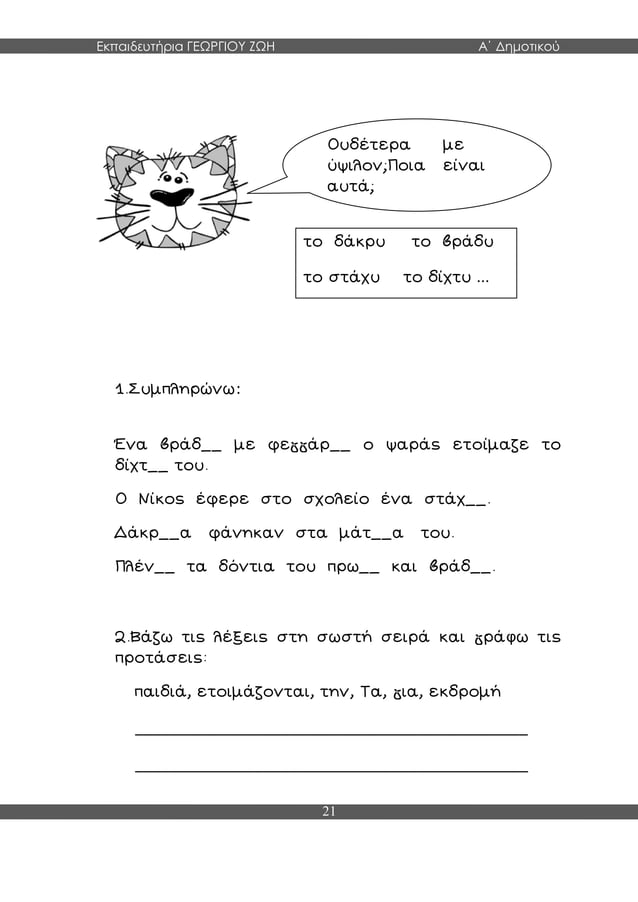 Εκπαιδευτήρια ΓΕΩΡΓΙΟΥ ΖΩΗ Α΄ Δημοτικού
Ουδέτερα με
ύψιλον;Ποια είναι
αυτά;
το δάκρυ το βράδυ
το στάχυ το δίχτυ ...
1.Συμπληρώνω:
Ένα βράδ__ με φεγγάρ__ ο ψαράς ετοίμαζε το
δίχτ__ του.
Ο Νίκος έφερε στο σχολείο ένα στάχ__.
Δάκρ__α φάνηκαν στα μάτ__α του.
Πλέν__ τα δόντια του πρω__ και βράδ__.
2.Βάζω τις λέξεις στη σωστή σειρά και γράφω τις
προτάσεις:
παιδιά, ετοιμάζονται, την, Τα, για, εκδρομή
21